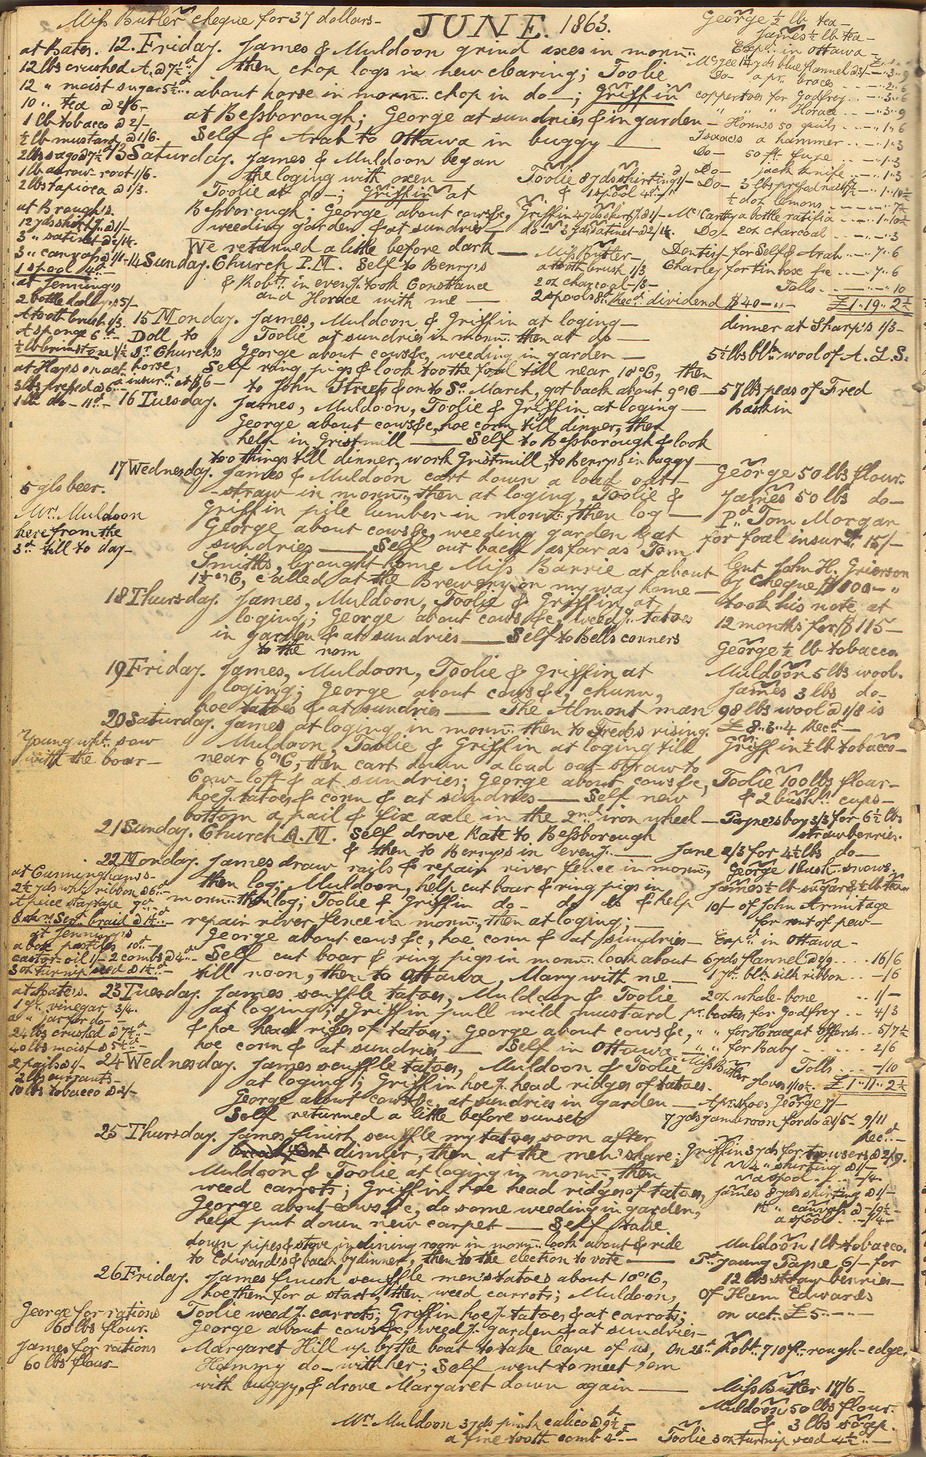 Miss Butler cheque for 37 dollars-
JUNE. 1863.
George ½ lb tea-
James ½ lb tea-
Exp.: in Ottawa-
at Bates.
12 lbs crushed
12 " moist sugar
10 " tea @ 2/6-
1 lb tobacco @ 2/-
½ lb mustard @ 1/6-
1 lb arrow-root 1/6-
2 lbs tapioca @ 1/3.
at Brough's
1 spool 4d-
at Jenning's
2 bottle dolly 5/-
A tooth brush 1/3.
A sponge 6d-
12. Friday. James & Muldoon grind axes in morn.:
then chop logs in new clearing; Toolie
about horse in morn.: chop in do-; Griffin
at Bessborough; George at sundries & in garden-
Self & Arah to Ottawa in buggy-
blue flannel
pr. braces
copper toes for Godfrey
Horace
Isaacs a hammer
Do- 50 ft. fuze
Do- jack knife
½ doz lemons
McCarthy a bottle ratifia
Do 2 oz charcoal
Dentist for Self & Arah 7..6
Charley for tinbox &c 7..6
Tolls 10
£1..19..2½
13 Saturday. James & Muldoon began
the loging with oxen-
Toolie at do-; Griffin at
Bessborough; George about cows &c,
weeding garden & at sundries-
We returned a little before dark-
Miss Butler-
a tooth brush 1/3
2 oz charcoal -/3-
2 spools 8d rec.d dividend $40-
14 Sunday. Church P.M. Self to Berry's
& Rob.t: in even.g took Constance
and Horace with me-
dinner at Sharp's 1/3-
15 Monday. James, Muldoon & Griffin at loging-
Doll to Toolie at sundries in morn.: then at do-
St Church's George about cows &c, weeding in garden-
Self ring pigs & look too the foal till near 10 o'c, then
to John Street's & on to St. March, got back about 9 o'c-
5½ lbs blk: wool of A.L.S.
57 lbs peas of Fred
Haskin
16 Tuesday. James, Muldoon, Toolie & Griffin at loging-
George about cows &c, hoe corn till dinner, then
help in Gristmill- Self to Bessborough & look
too things till dinner, work Gristmill, to Berry's in buggy-
17 Wednesday. James & Muldoon cart down a load oat
straw in morn.: then at loging, Toolie &
Griffin pile lumber in morn.: then log-
George about cows &c, weeding garden & at
sundries- Self out back as far as Tom
Smith's, brought home Miss Barrie at about
1½ o'c, called at the Brewery on my way home-
5 gls beer.
Mrs. Muldoon
here from the
3d till to day-
George 50 lbs flour.
James 50 lbs do-
Pd Tom Morgan
for foal insur.ce 15/-
lent John H. Grierson
by Cheque $100-"
took his note at
12 months for $115-
18 Thursday. James, Muldoon, Toolie & Griffin at
loging; George about cows &c, weed.g tatoes
in garden & at sundries- Self to Bells corners
to the nom
George ½ lb tobacco
19 Friday. James, Muldoon, Toolie & Griffin at
loging; George about cows &c, churn,
hoe tatoes & at sundries- The Almont man
Muldoon 5 lbs wool.
James 3 lbs do-
98 lbs wool @ 1/8 is
£8..3..4 rec.d-
20 Saturday. James at loging in morn.: then to Fred's rising.
Muldoon, Toolie & Griffin at loging till
near 6 o'c, then cart down a load oat straw to
Cow-loft & at sundries; George about cows &c,
hoe.g tatoes & corn & at sundries- Self new
bottom a pail & fix axle in the 2nd iron wheel-
Young wht. sow
with the boar-
Griffin ½ lb tobacco-
Toolie 100 lbs flour-
& 2 bush.ls cups-
Payne's boy 3/3 for 6½ lbs
strawberries.
21 Sunday. Church A.M. Self drove Kate to Bessborough
& then to Berry's in even.g-
Jane 2/3 for 4½ lbs do-
22 Monday. James draw rails & repair river fence in morn.:
then log; Muldoon, help cut boar & ring pigs in
morn.: then log; Toolie & Griffin do- do- do & help
repair river fence in morn.: then at loging;
George about cows &c, hoe corn & at sundries-
Self cut boar & ring pigs in morn.: look about
till noon, then to Ottawa, Mary with me-
at Cunningham's-
at Jenning's
a box pastiles 10d-
castor oil 1/- 2 combs
3 oz turnip seed
George Hush: snows.
James ½ lb sugar & ½ lb tea
10/- of John Armitage
for rent of pew-
Exp.: in Ottawa-
6 yds flannel @ 2/9 16/6
1 yd. blk: silk ribbon -/6
23 Tuesday. James scuffle tatoes, Muldoon & Toolie
at loging; Griffin pull wild mustard
& hoe head ridges of tatoes; George about cows &c,
hoe corn & at sundries- Self in Ottawa
at Bates.
1 gl. vinegar 3/4.
2 pails @ 1/-
2 lbs currants-
10 lbs tobacco @ 2/-
2 oz whale-bone 1/-
pr. boots for Godfrey 4/3
" " for Horace at Offords 5/7½
" " for Baby 2/6
Tolls -/10
£1..11..2½
24 Wednesday. James scuffle tatoes, Muldoon & Toolie
at loging; Griffin hoe.g head ridges of tatoes.
George about cows &c, at sundries in garden-
Self returned a little before sunset
Miss Butler
A pr. shoes George 7/-
25 Thursday. James finish scuffle my tatoes soon after
dinner, then at the men's share;
Muldoon & Toolie at loging in morn.: then
weed carrots; Griffin hoe head ridges of tatoes,
George about cows &c, do some weeding in garden,
help put down new carpet- Self take
down pipes & stove in dining room in morn.: look about & ride
to Edwards & back by dinner, then to the election to vote-
Griffin 3 yds for trowsers @ 2/9.
" 4 " shirting @ 1/-
" a spool -/4-
James 8 yds shirting @ 1/-
a spool -/4-
Muldoon 1 lb tobacco.
Pd. young Payne 6/- for
12 lbs strawberries-
26 Friday. James finish scuffle men's tatoes about 10 o'c,
hoe them for a start, then weed carrots; Muldoon,
Toolie weed.g carrots; Griffin hoe.g tatoes & at carrots;
George about cows &c, weed.g garden & at sundries-
Margaret Hill up by the boat to take leave of us,
Hammy do- with her; Self went to meet 'em
with buggy, & drove Margaret down again-
George for rations
60 lbs flour.
James for rations
60 lbs flour-
of Ham Edwards
on act. £5-
Rob.t: 710 ft. rough-edge.
Miss Butler 17/6-
Muldoon 50 lbs flour.
& 3 lbs soap.
Mrs. Muldoon 3 yds pink calico
a fine tooth comb
Toolie 3 oz turnip seed